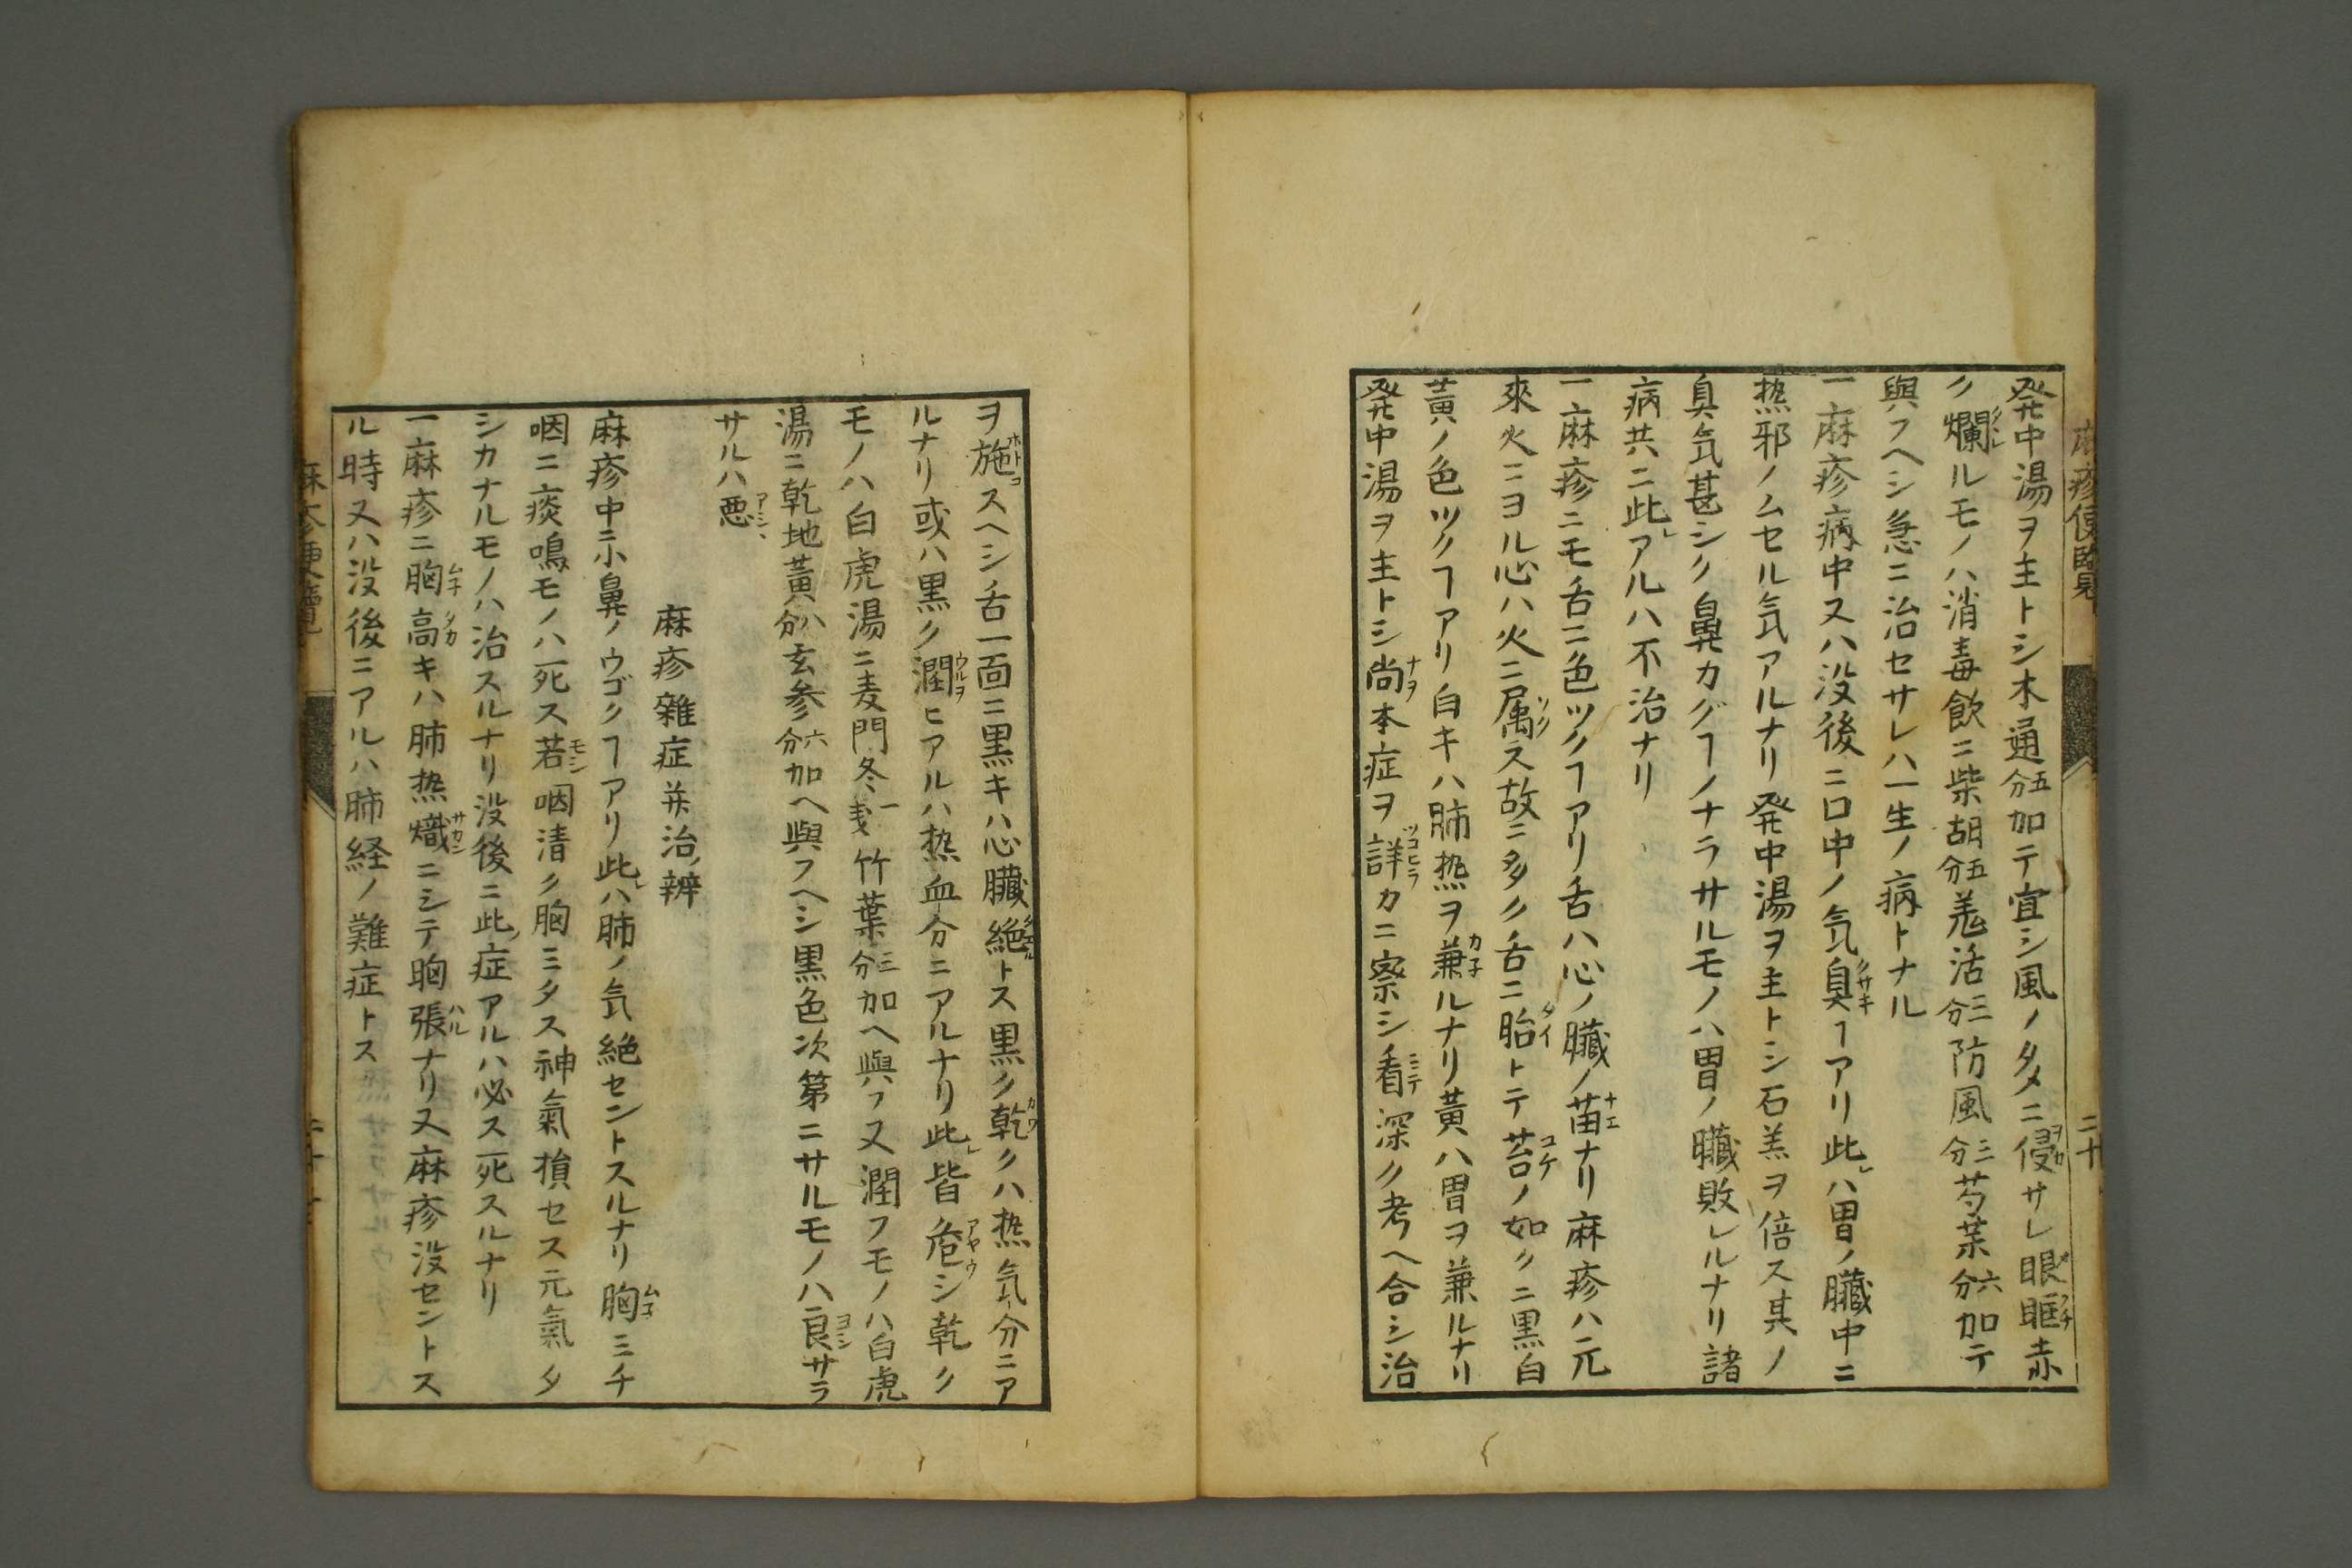 発中湯ヲ主トシ木通五分加テ宜シ風ノタメニ侵サレ眼眶赤
ク爛ルモノハ消毒飲ニ柴胡五分羗活三分防風三分芍薬六分加テ
與フヘシ急ニ治セサレハ一生ノ病トナル
一麻疹病中又ハ没後ニ口中ノ気臭ヿアリ此レハ胃ノ臓中ニ
熱邪ノムセル気アルナリ発中湯ヲ主トシ石羔ヲ倍ス其ノ
臭気甚シク鼻カグヿノナラサルモノハ胃ノ臓敗レルナリ諸
病共ニ此レアルハ不治ナリ
一麻疹ニモ舌ニ色ツクヿアリ舌ハ心ノ臓ノ苗ナリ麻疹ハ元
來火ニヨル心ハ火ニ属ス故ニ多ク舌ニ胎トテ苔ノ如クニ黒白
黄ノ色ツクヿアリ白キハ肺熱ヲ兼ルナリ黄ハ胃ヲ兼ルナリ
発中湯ヲ主トシ尚本症ヲ詳カニ察シ看深ク考ヘ合シ治
麻疹便覧
二十
ヲ施スヘシ舌一面ニ黒キハ心臓絶トス黒ク乾クハ熱気分ニア
ルナリ或ハ黒ク潤ヒアルハ熱血分ニアルナリ此レ皆危シ乾ク
モノハ白虎湯ニ麦門冬一戔竹葉三分加ヘ與フ又潤フモノハ白虎
湯ニ乾地黄八分玄参六分加ヘ與フヘシ黒色次第ニサルモノハ良サラ
サルハ悪シヽ
麻疹雑症并治ノ辨
麻疹中ニ小鼻ノウゴクヿアリ此レハ肺ノ気絶セントスルナリ胸ミチ
咽ニ痰鳴モノハ死ス若咽清ク胸ミタス神氣損セス元氣タ
シカナルモノハ治スルナリ没後ニ此ノ症アルハ必ス死スルナリ
一麻疹ニ胸高キハ肺熱熾ニシテ胸張ナリ又麻疹没セントス
ル時又ハ没後ニアルハ肺経ノ難症トス
麻疹便覽